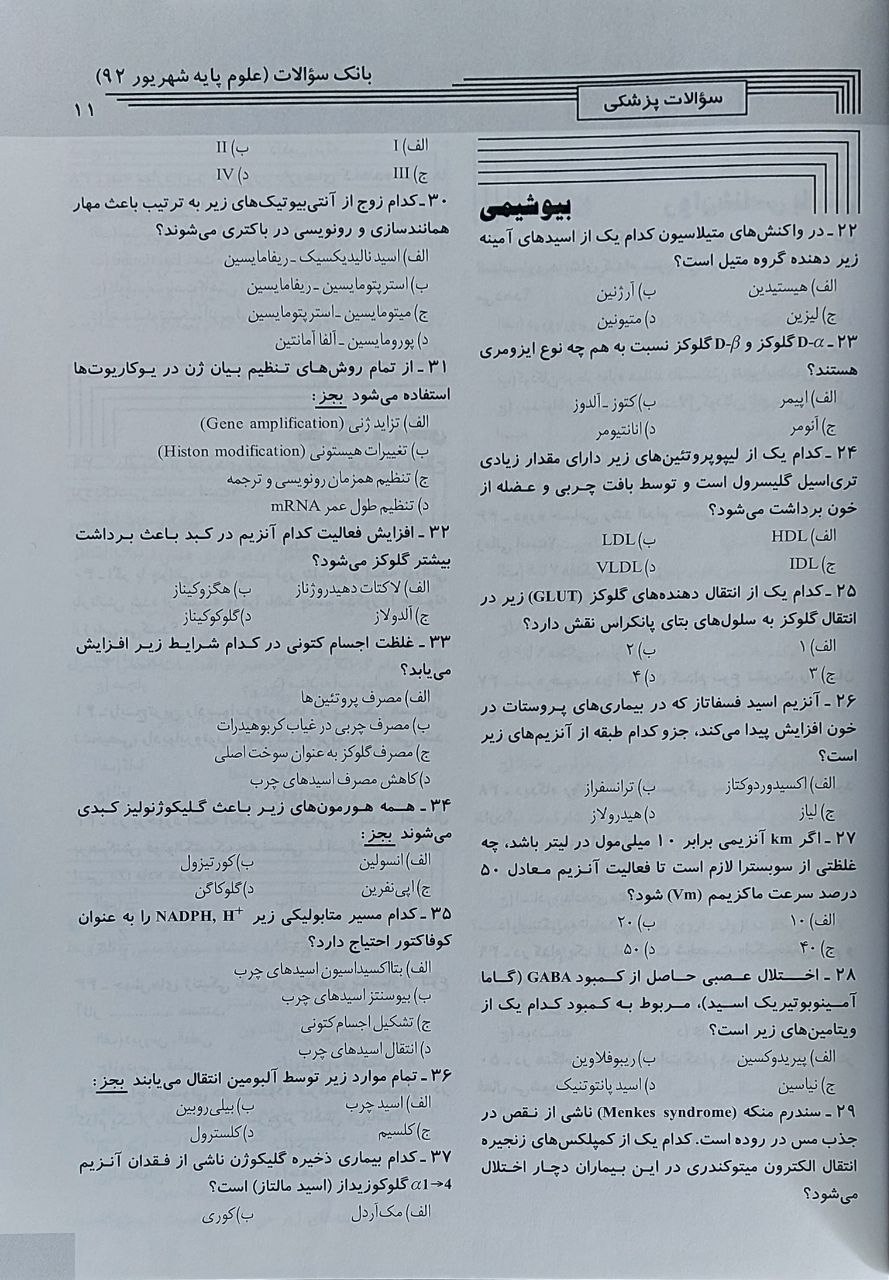 بانک سؤالات (علوم پایه شهریور ۹۲)
سؤالات پزشکی
۱۱
بیوشیمی
۲۲ـ در واکنش‌های متیلاسیون کدام یک از اسیدهای آمینه
زیر دهنده گروه متیل است؟
الف) هیستیدین ب) آرژنین
ج) لیزین د) متیونین
۲۳ـ D-α گلوکز و D-β گلوکز نسبت به هم چه نوع ایزومری
هستند؟
الف) اپیمر ب) کتوز ـ آلدوز
ج) آنومر د) انانتیومر
۲۴ـ کدام یک از لیپوپروتئین‌های زیر دارای مقدار زیادی
تری‌اسیل گلیسرول است و توسط بافت چربی و عضله از
خون برداشت می‌شود؟
الف) HDL ب) LDL
ج) IDL د) VLDL
۲۵ـ کدام یک از انتقال دهنده‌های گلوکز (GLUT) زیر در
انتقال گلوکز به سلول‌های بتای پانکراس نقش دارد؟
الف) ۱ ب) ۲
ج) ۳ د) ۴
۲۶ـ آنزیم اسید فسفاتاز که در بیماری‌های پروستات در
خون افزایش پیدا می‌کند، جزو کدام طبقه از آنزیم‌های زیر
است؟
الف) اکسیدوردوکتاز ب) ترانسفراز
ج) لیاز د) هیدرولاز
۲۷ـ اگر km آنزیمی برابر ۱۰ میلی‌مول در لیتر باشد، چه
غلظتی از سوبسترا لازم است تا فعالیت آنزیم معادل ۵۰
درصد سرعت ماکزیمم (Vm) شود؟
الف) ۱۰ ب) ۲۰
ج) ۴۰ د) ۵۰
۲۸ـ اختلال عصبی حاصل از کمبود GABA (گاما
آمینوبوتیریک اسید)، مربوط به کمبود کدام یک از
ویتامین‌های زیر است؟
الف) پیریدوکسین ب) ریبوفلاوین
ج) نیاسین د) اسید پانتوتنیک
۲۹ـ سندرم منکه (Menkes syndrome) ناشی از نقص در
جذب مس در روده است. کدام یک از کمپلکس‌های زنجیره
انتقال الکترون میتوکندری در این بیماران دچار اختلال
می‌شود؟
الف) I ب) II
ج) III د) IV
۳۰ـ کدام زوج از آنتی‌بیوتیک‌های زیر به ترتیب باعث مهار
همانندسازی و رونویسی در باکتری می‌شوند؟
الف) اسید نالیدیکسیک ـ ریفامایسین
ب) استرپتومایسین ـ ریفامایسین
ج) میتومایسین ـ استرپتومایسین
د) پورومایسین ـ آلفا آمانتین
۳۱ـ از تمام روش‌های تنظیم بیان ژن در یوکاریوت‌ها
استفاده می‌شود بجز:
الف) تزاید ژنی (Gene amplification)
ب) تغییرات هیستونی (Histon modification)
ج) تنظیم همزمان رونویسی و ترجمه
د) تنظیم طول عمر mRNA
۳۲ـ افزایش فعالیت کدام آنزیم در کبد باعث برداشت
بیشتر گلوکز می‌شود؟
الف) لاکتات دهیدروژناز ب) هگزوکیناز
ج) آلدولاز د) گلوکوکیناز
۳۳ـ غلظت اجسام کتونی در کدام شرایط زیر افزایش
می‌یابد؟
الف) مصرف پروتئین‌ها
ب) مصرف چربی در غیاب کربوهیدرات
ج) مصرف گلوکز به عنوان سوخت اصلی
د) کاهش مصرف اسیدهای چرب
۳۴ـ همه هورمون‌های زیر باعث گلیکوژنولیز کبدی
می‌شوند بجز:
الف) انسولین ب) کورتیزول
ج) اپی‌نفرین د) گلوکاگن
۳۵ـ کدام مسیر متابولیکی زیر NADPH, H⁺ را به عنوان
کوفاکتور احتیاج دارد؟
الف) بتااکسیداسیون اسیدهای چرب
ب) بیوسنتز اسیدهای چرب
ج) تشکیل اجسام کتونی
د) انتقال اسیدهای چرب
۳۶ـ تمام موارد زیر توسط آلبومین انتقال می‌یابند بجز:
الف) اسید چرب ب) بیلی‌روبین
ج) کلسیم د) کلسترول
۳۷ـ کدام بیماری ذخیره گلیکوژن ناشی از فقدان آنزیم
α1→4 گلوکوزیداز (اسید مالتاز) است؟
الف) مک‌آردل ب) کوری